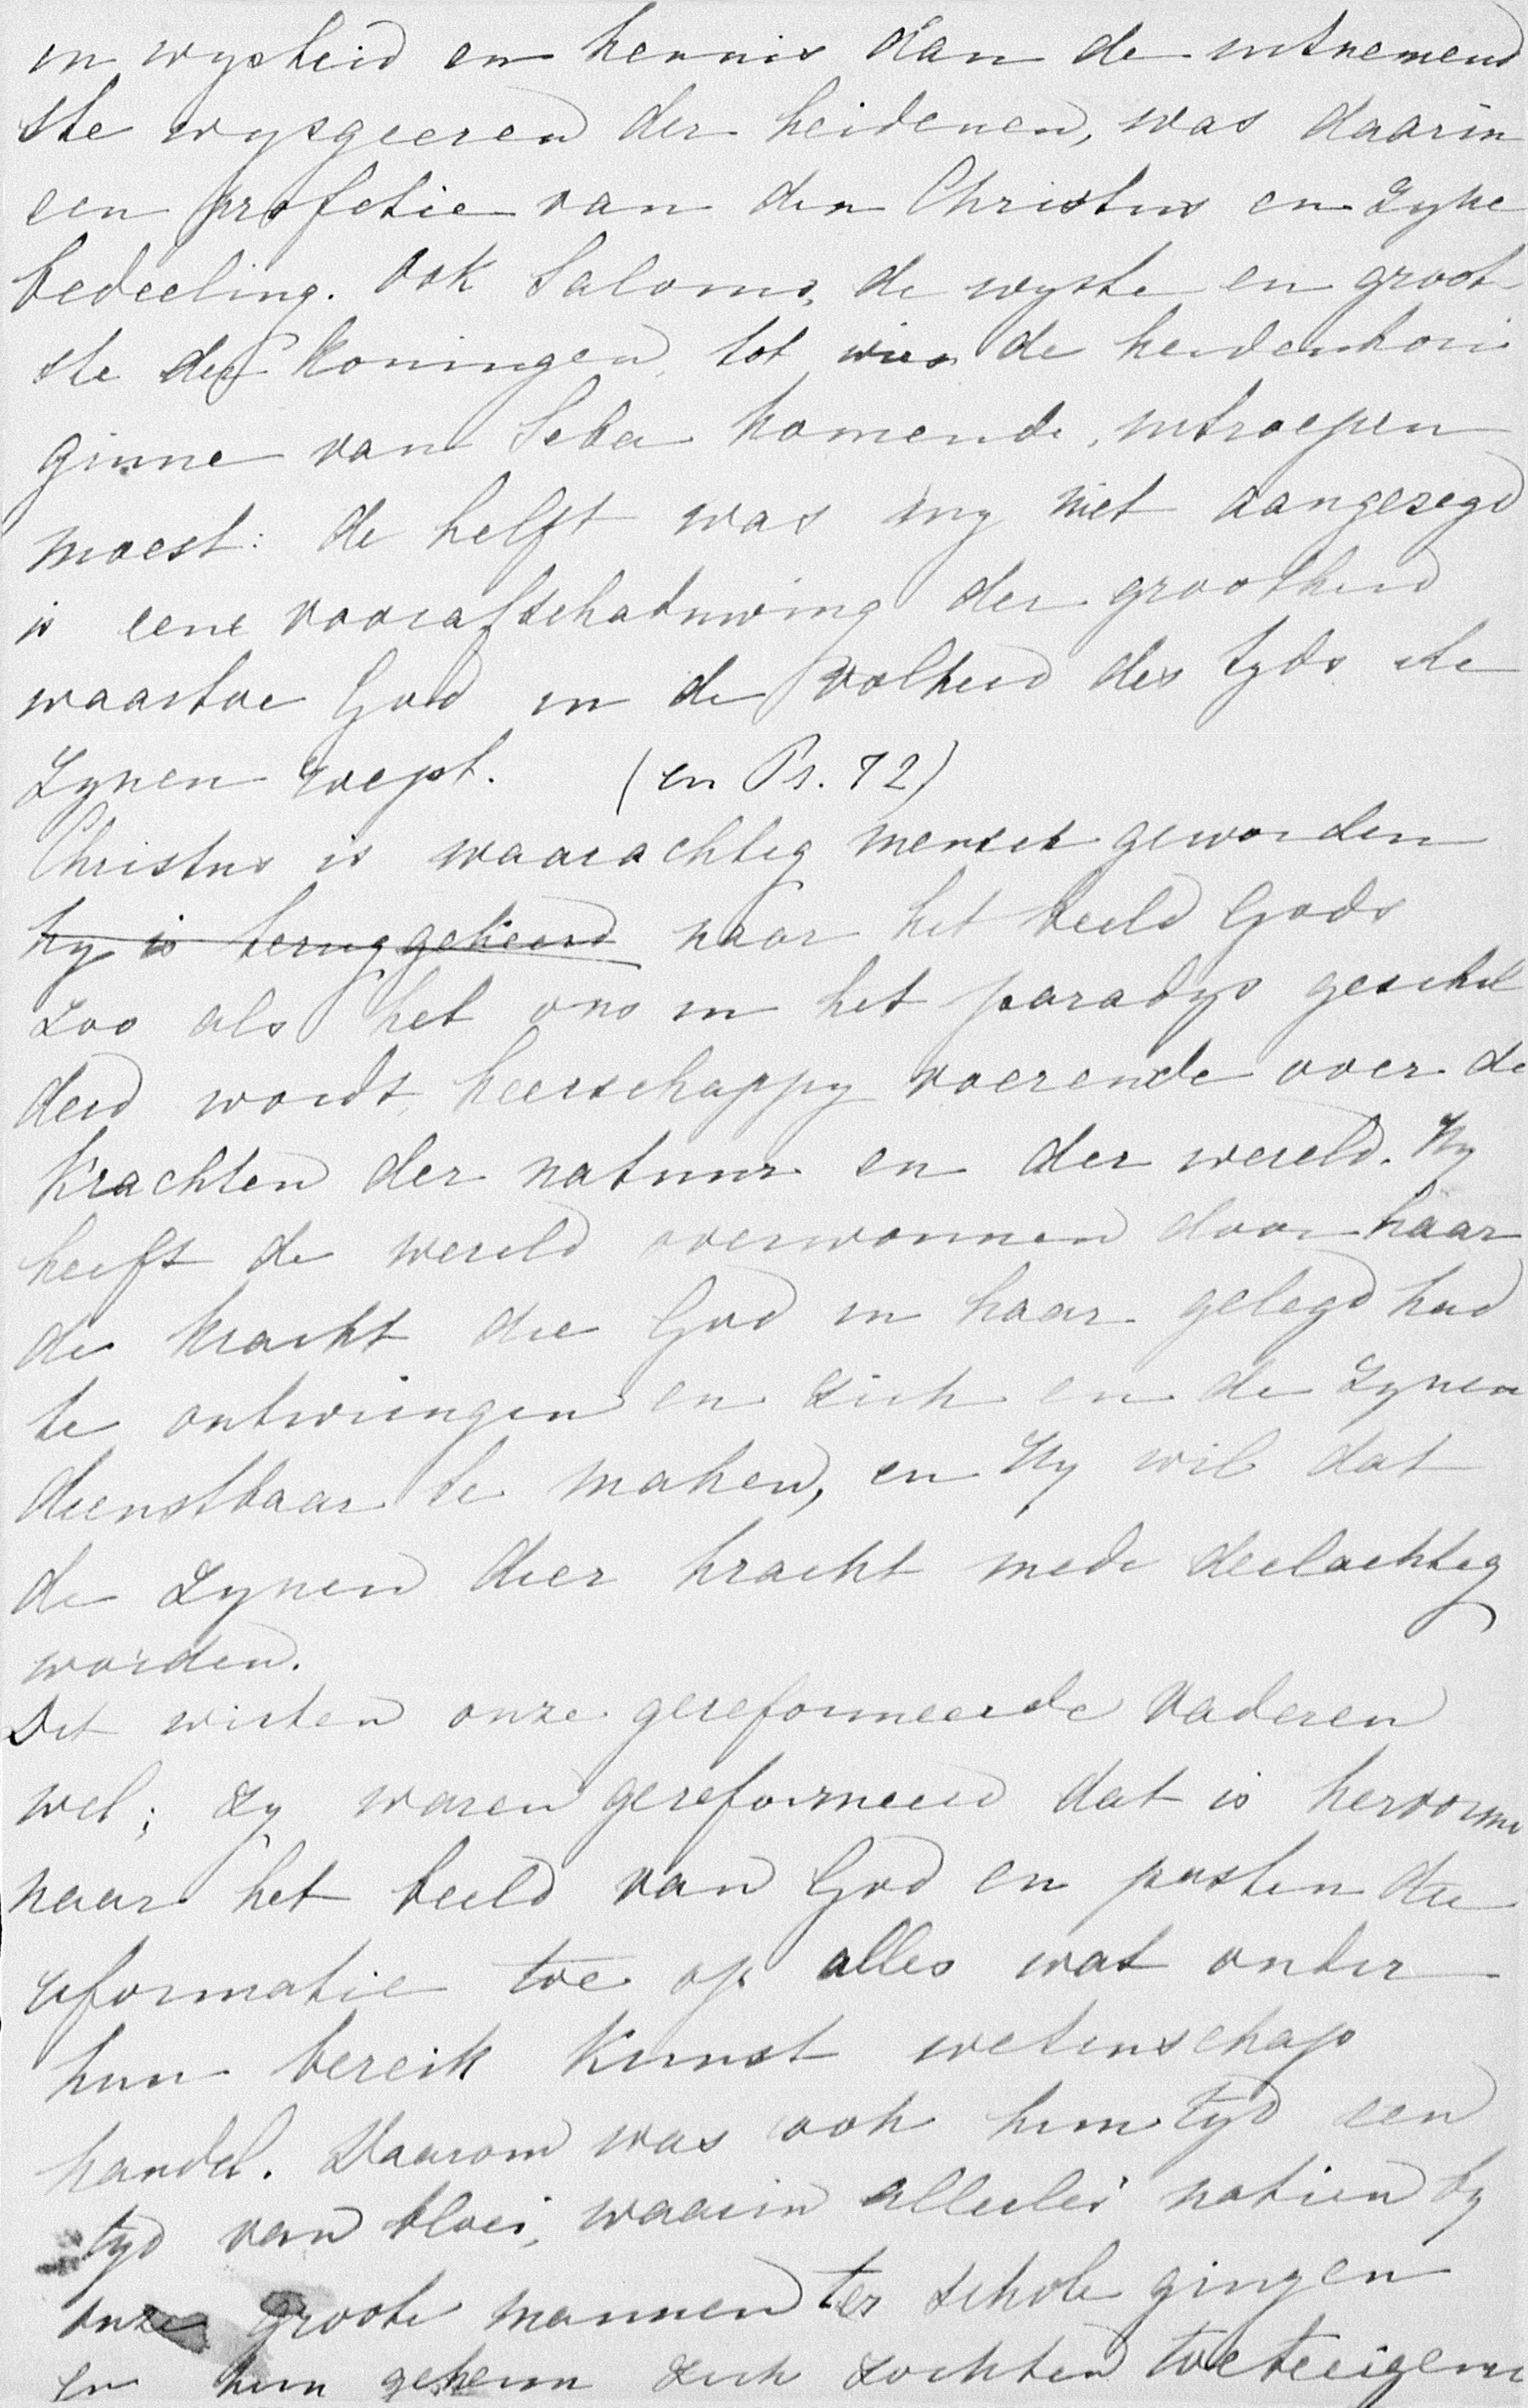 in wysheid en kennis dan de uitnemend
ste wysgeeren der heidenen, was daarin
een profetie van den Christus en Zyne
bedeeling. Ook Salomo, de wyste en groot-
ste der Koningen, tot wien de heidenkoni
ginne van Seba komende, uitroepen
moest: de helft was my niet aangezegd
is eene voorafschaduwing der grootheid
waartoe God in de volheid des tyds de
Zynen roept. (en Ps. 72)
Christus is waarachtig mensch geworden
hy is teruggekeerd naar het beeld Gods
zoo als het ons in het paradys geschil
derd wordt, heerschappy voerende over de
krachten der natuur en der wereld. Hy
heeft de wereld overwonnen door haar
de kracht die God in haar gelegd had
te ontwringen en zich en de Zynen
dienstbaar te maken, en Hy wil dat
de Zynen dier kracht mede deelachtig
worden.
Dit wisten onze gereformeerde Vaderen
wel; zy waren gereformeerd dat is hervormd
naar het beeld van God en pasten die
reformatie toe op alles wat onder
hun bereik kunst wetenschap
handel. Daarom was ook hun tyd een
tyd van bloei, waarin allerlei natien by
onze groote mannen ter schole gingen
en hun geheim zich zochten toeteeigenen